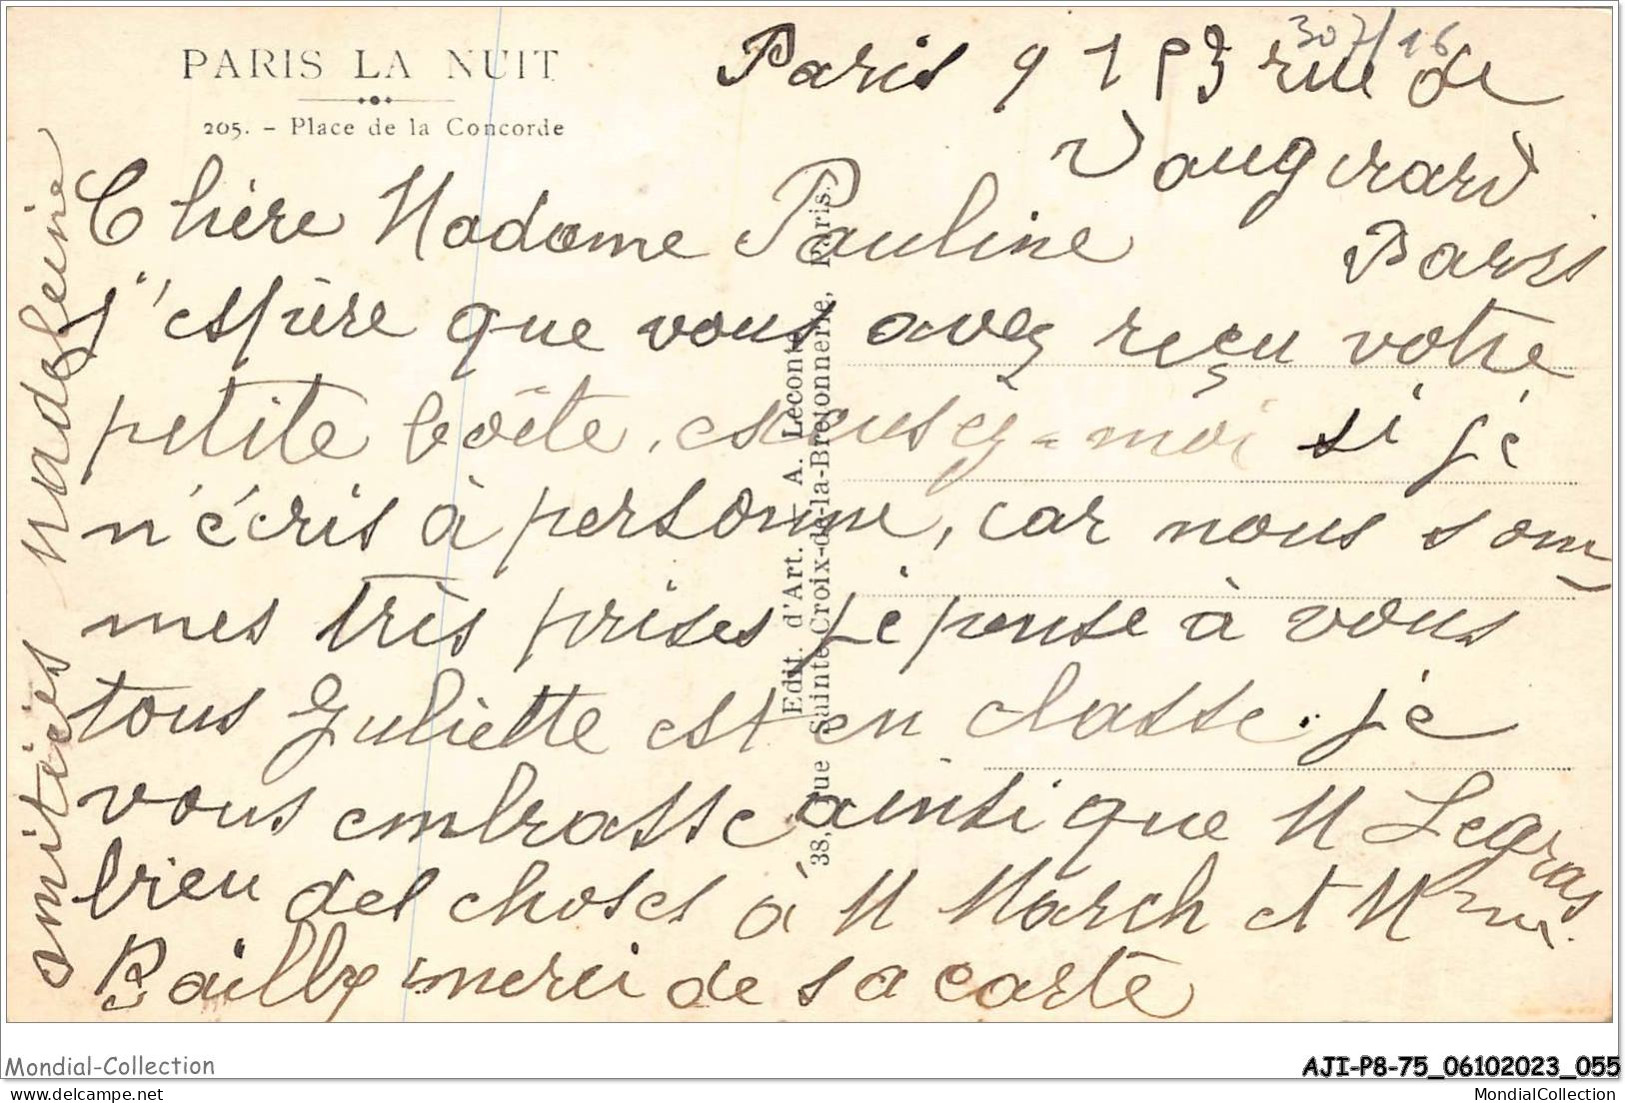 PARIS LA NUIT
205. - Place de la Concorde
307/16
Paris 9 1 53 rue de
Vaugirard
Paris
Chère Madame Pauline
j'espère que vous avez reçu votre
petite boîte, excusez-moi si je
n'écris à personne, car nous som
mes très prises je pense à vous
tous Juliette est en classe. je
vous embrasse ainsi que M Legras
bien des choses à M March et Mme
Bailly merci de sa carte
amitiées Madeleine
Edit. d'Art. - A. Leconte
38, rue Sainte-Croix-de-la-Bretonnerie, Paris.
Mondial-Collection
AJI-P8-75_06102023_055
MondialCollection
MondialCollection